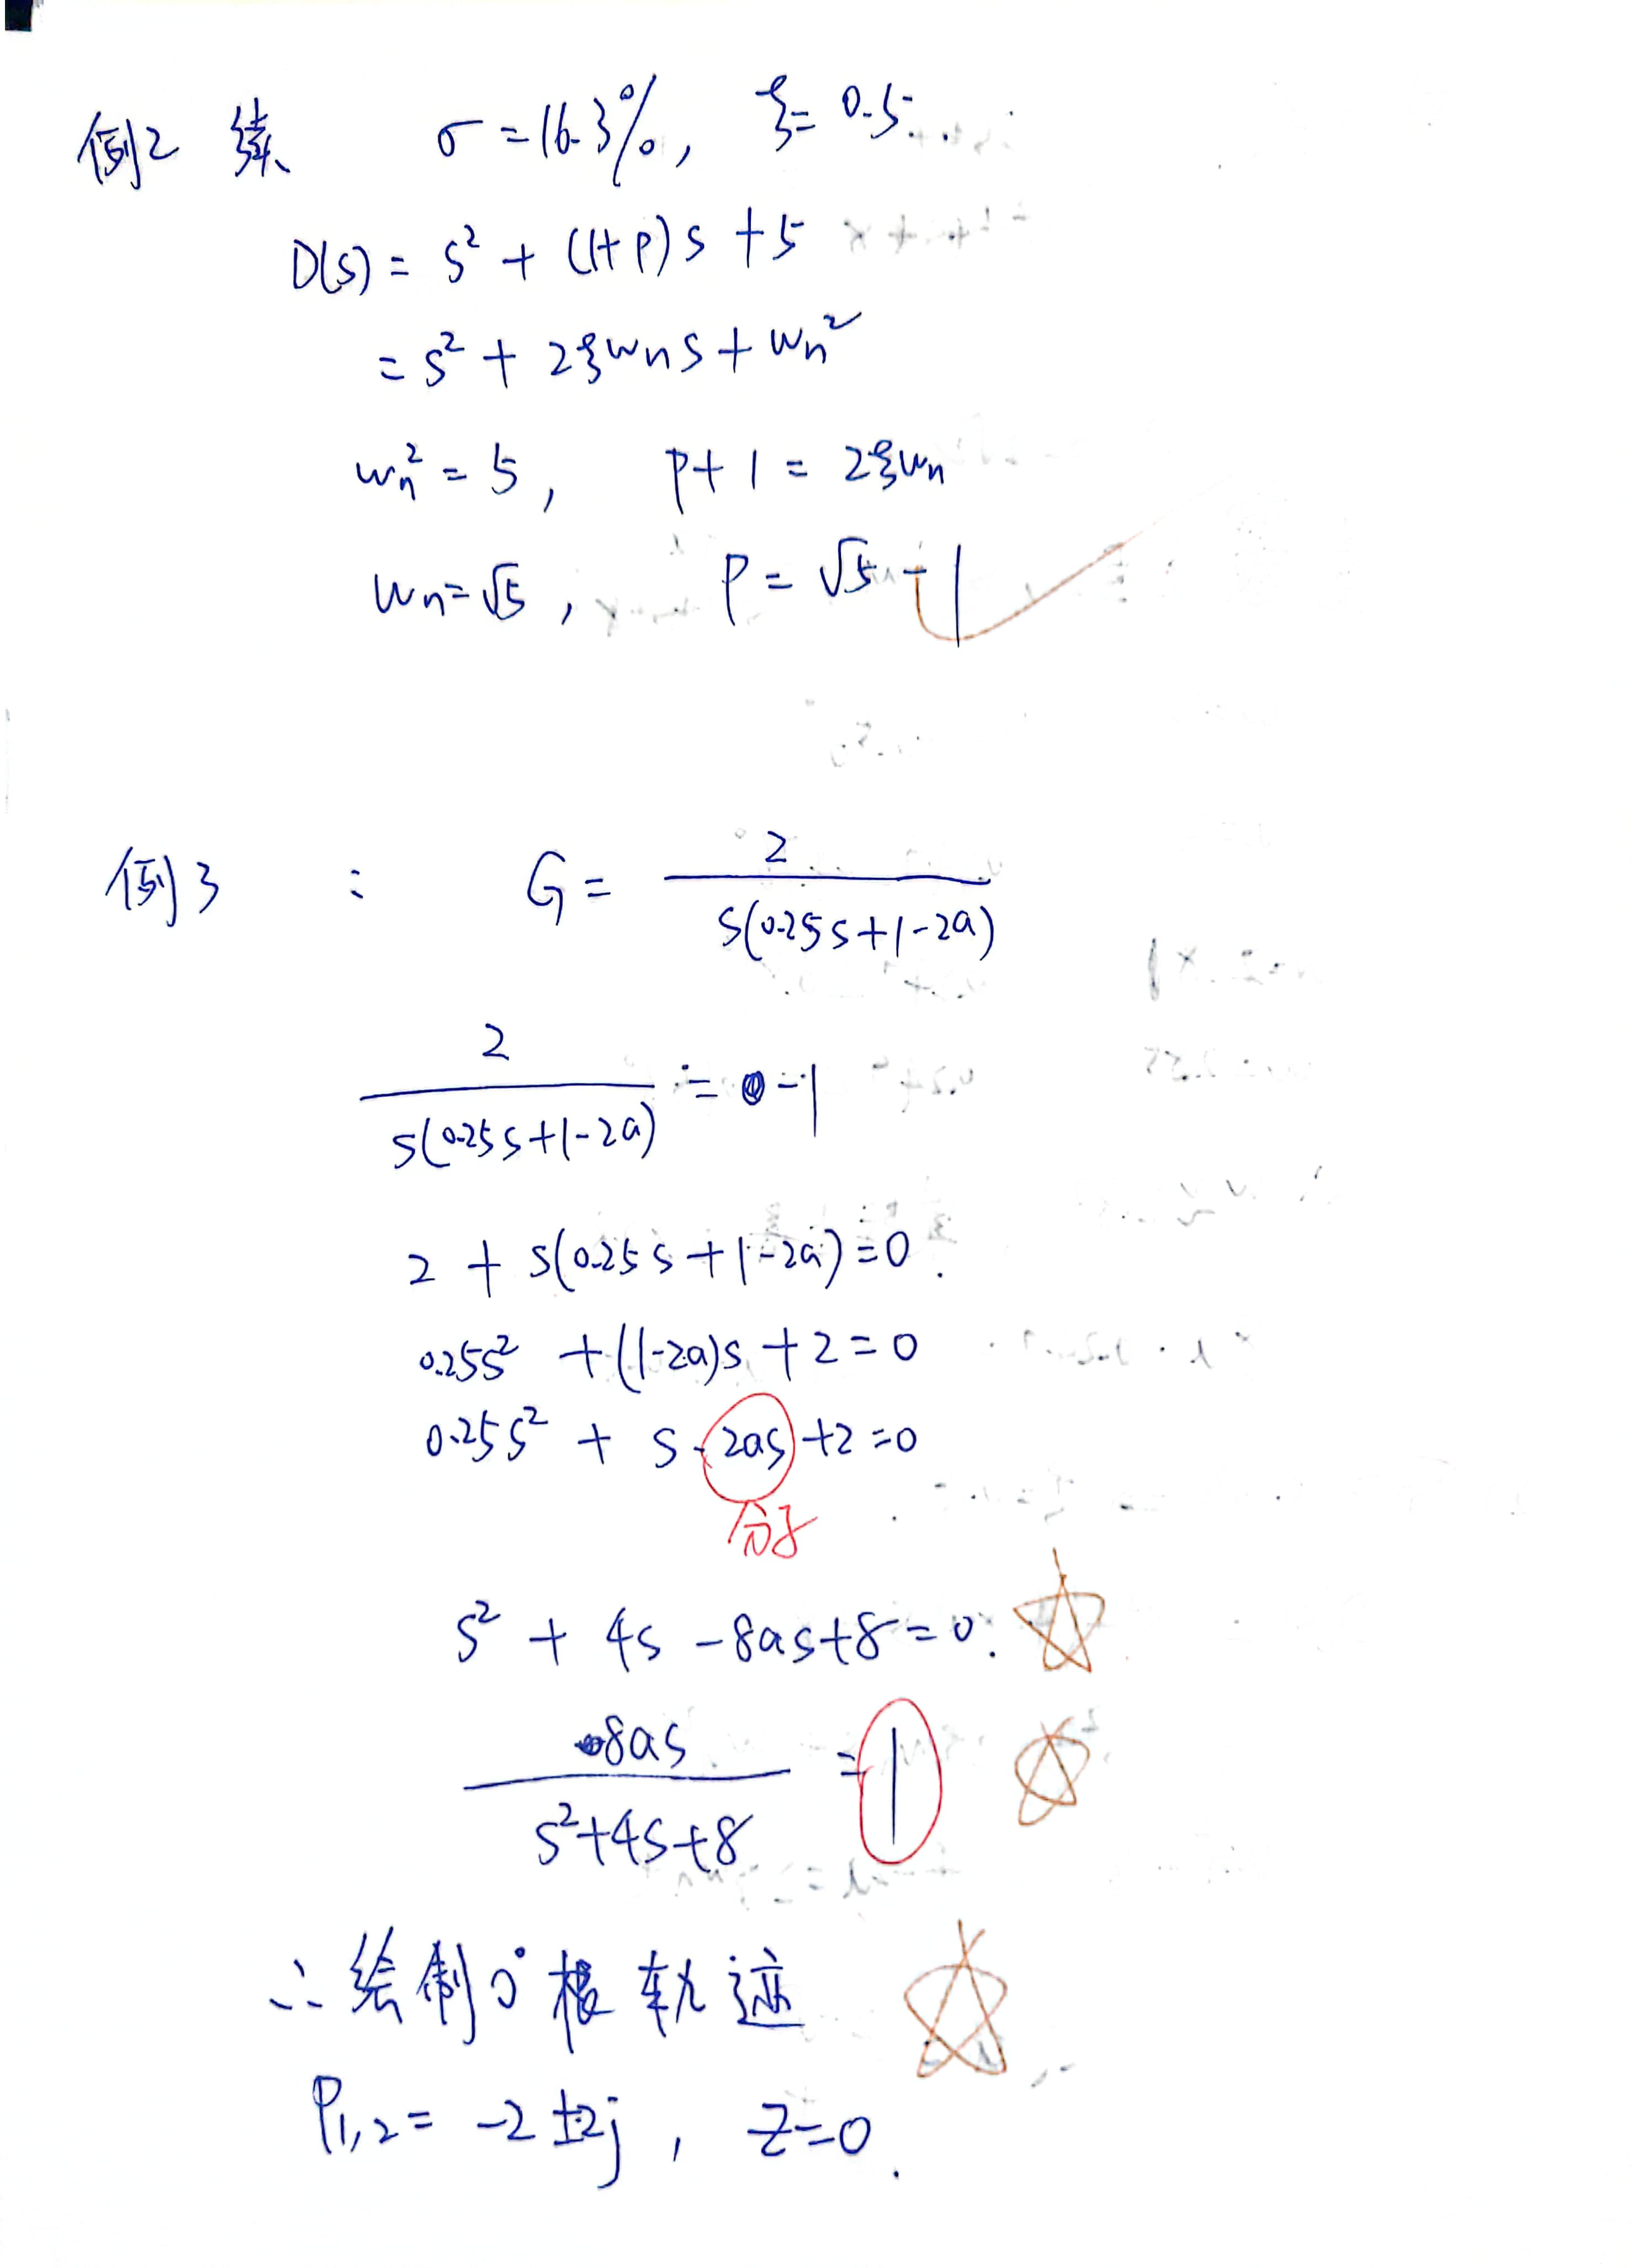 例2 续 σ=16.3%, ξ=0.5
D(s)= s² + (1+p)s +5
= s² + 2ξwns + wn²
wn² = 5, p+1 = 2ξwn
wn=√5, p=√5-1
例3 : G= 2/(s(0.25s+1-2a))
2/(s(0.25s+1-2a)) = -1
2 + s(0.25s+1-2a)=0.
0.25s² +(1-2a)s +2=0
0.25s² + s-2as+2=0
分子
s² + 4s -8as+8=0.
8as/(s²+4s+8) =1
∴绘制0°根轨迹
P1,2= -2±2j, z=0.